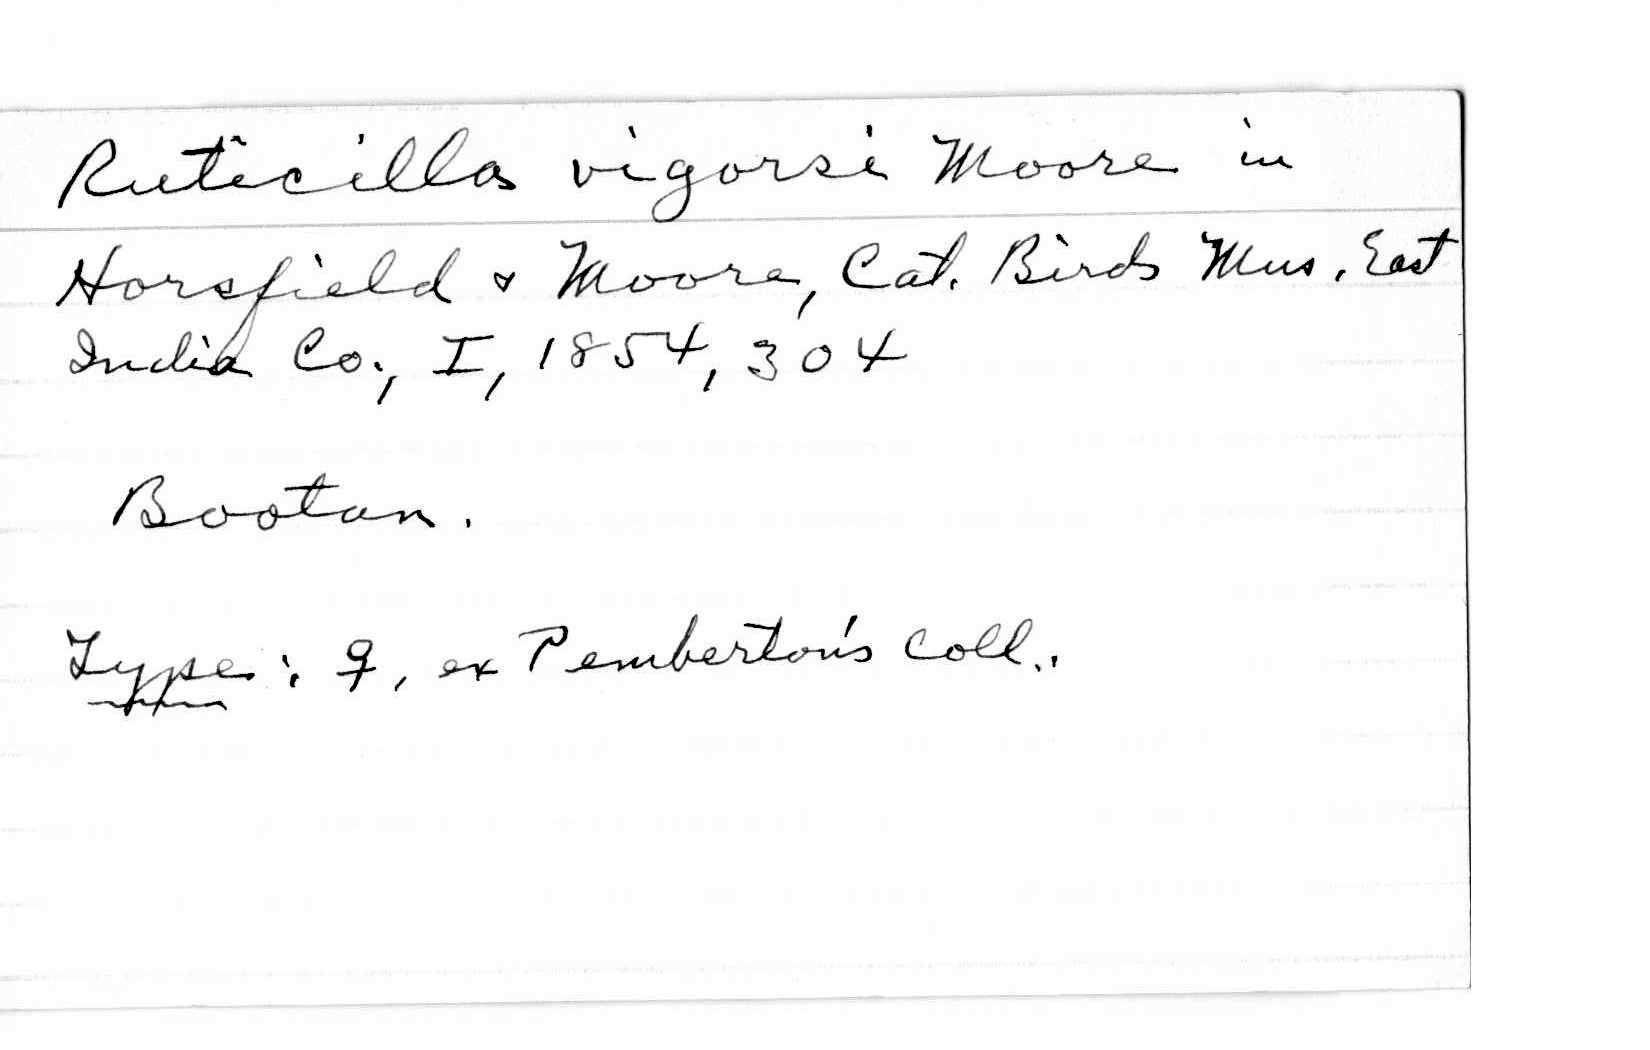 Ruticilla vigorsi Moore in
Horsfield & Moore, Cat. Birds Mus. East
India Co., I, 1854, 304
Bootan.
Type: ♀, ex Pemberton's coll..